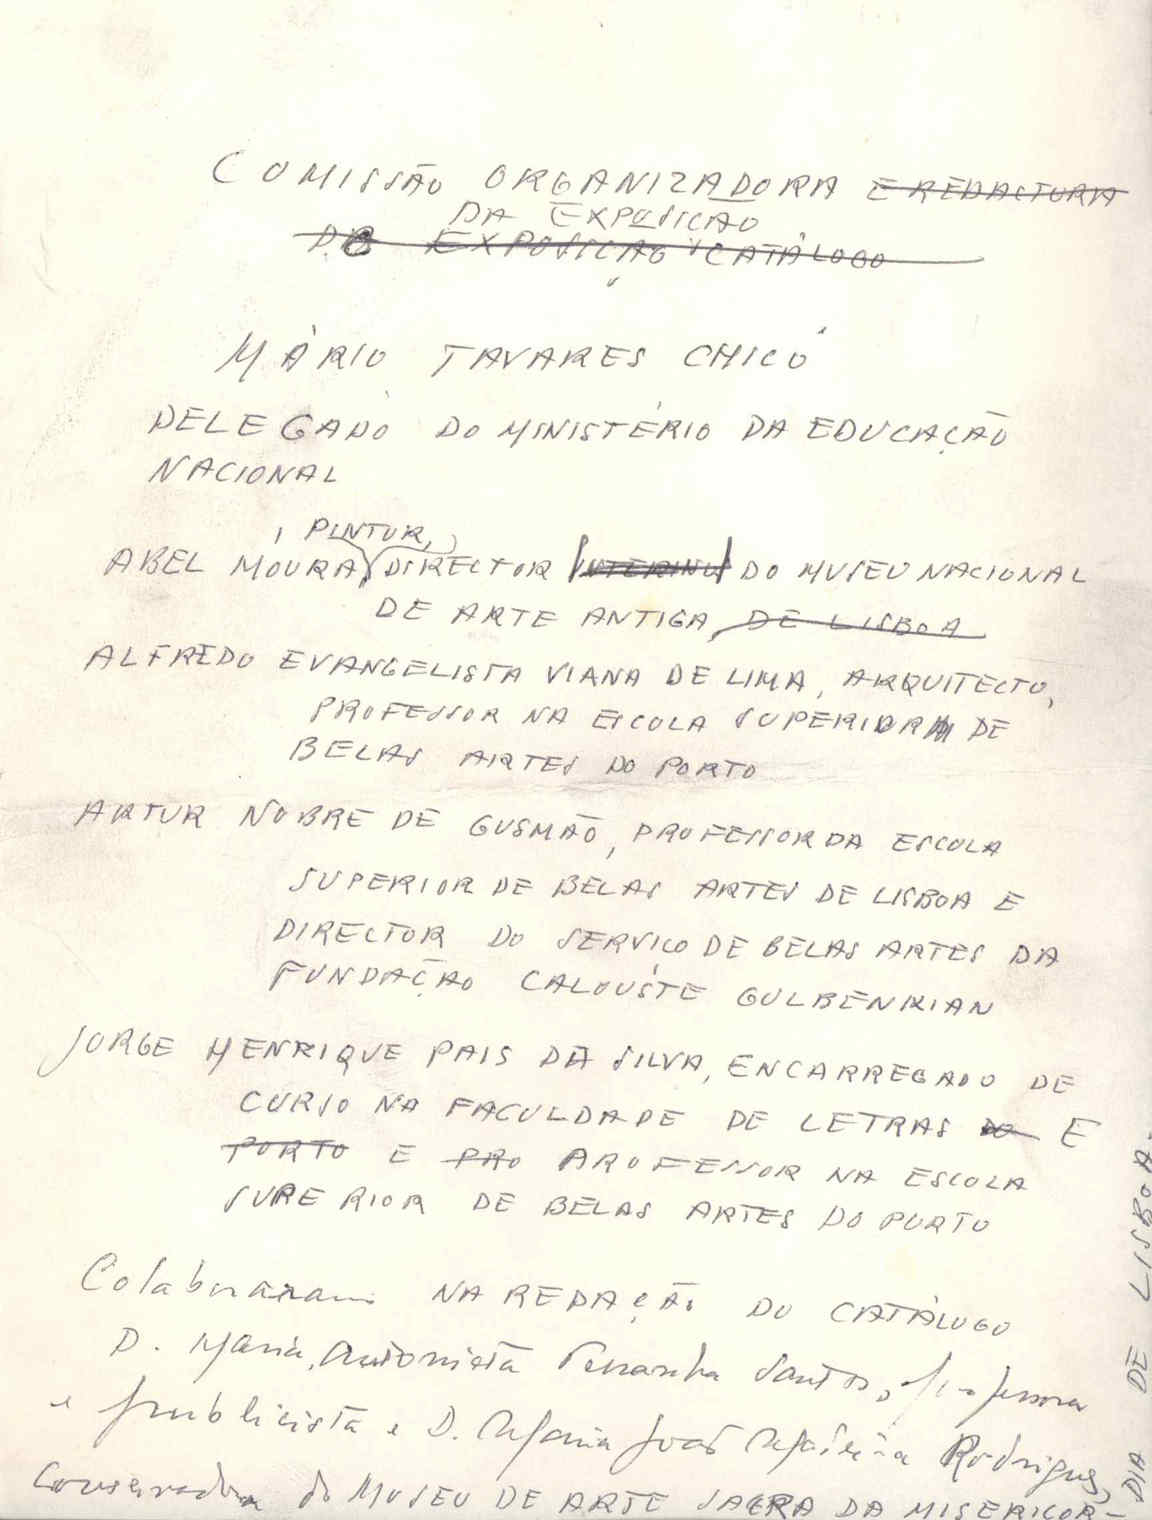 COMISSÃO ORGANIZADORA E REDACTORA
DA EXPOSIÇÃO
DE EXPOSIÇÃO CATÁLOGO
MÁRIO TAVARES CHICÓ
DELEGADO DO MINISTÉRIO DA EDUCAÇÃO
NACIONAL
, PINTOR,
ABEL MOURA, DIRECTOR INTERINO DO MUSEU NACIONAL
DE ARTE ANTIGA, DE LISBOA
ALFREDO EVANGELISTA VIANA DE LIMA, ARQUITECTO,
PROFESSOR NA ESCOLA SUPERIOR DE
BELAS ARTES DO PORTO
ARTUR NOBRE DE GUSMÃO, PROFESSOR DA ESCOLA
SUPERIOR DE BELAS ARTES DE LISBOA E
DIRECTOR DO SERVIÇO DE BELAS ARTES DA
FUNDAÇÃO CALOUSTE GULBENKIAN
JORGE HENRIQUE PAIS DA SILVA, ENCARREGADO DE
CURSO NA FACULDADE DE LETRAS DO E
PORTO E PRO PROFESSOR NA ESCOLA
SUPERIOR DE BELAS ARTES DO PORTO
Colaboraram NA REDAÇÃO DO CATÁLOGO
D. Maria Antonieta Santos, professora
e publicista e D. Maria João Madeira Rodrigues,
Conservadora do MUSEU DE ARTE SACRA DA MISERICOR-
DIA DE LISBOA.